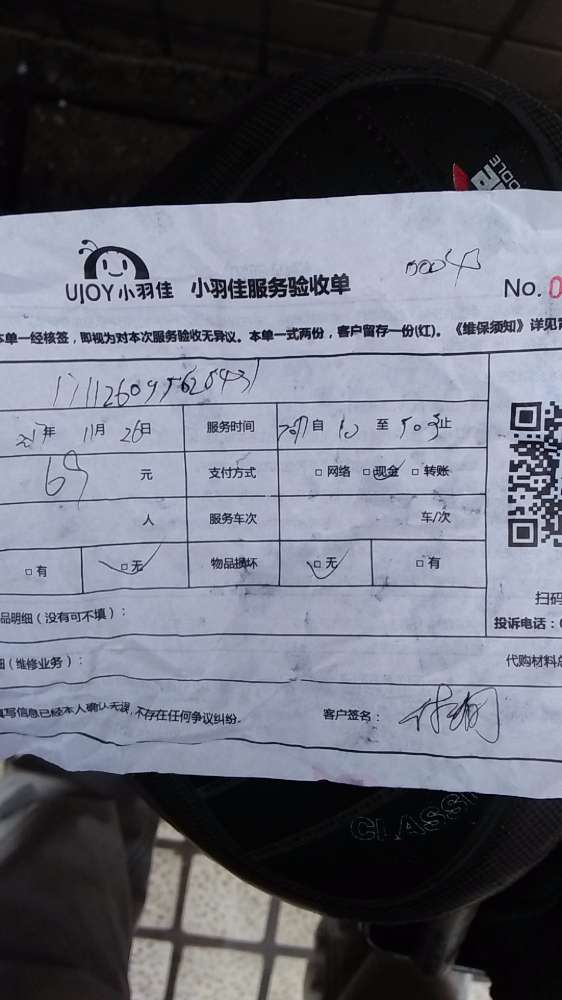 UJOY小羽佳 小羽佳服务验收单
No. 0
本单一经核签，即视为对本次服务验收无异议。本单一式两份，客户留存一份(红)。《维保须知》详见
年 11月 26日 服务时间 自 10 至 止
69 元 支付方式 □网络 □现金 □转账
人 服务车次 车/次
□有 □无 物品损坏 □无 □有
扫码
品明细（没有可不填）：
投诉电话：
（维修业务）：
代购材料总
填写信息已经本人确认无误，不存在任何争议纠纷。 客户签名：
CLASSI